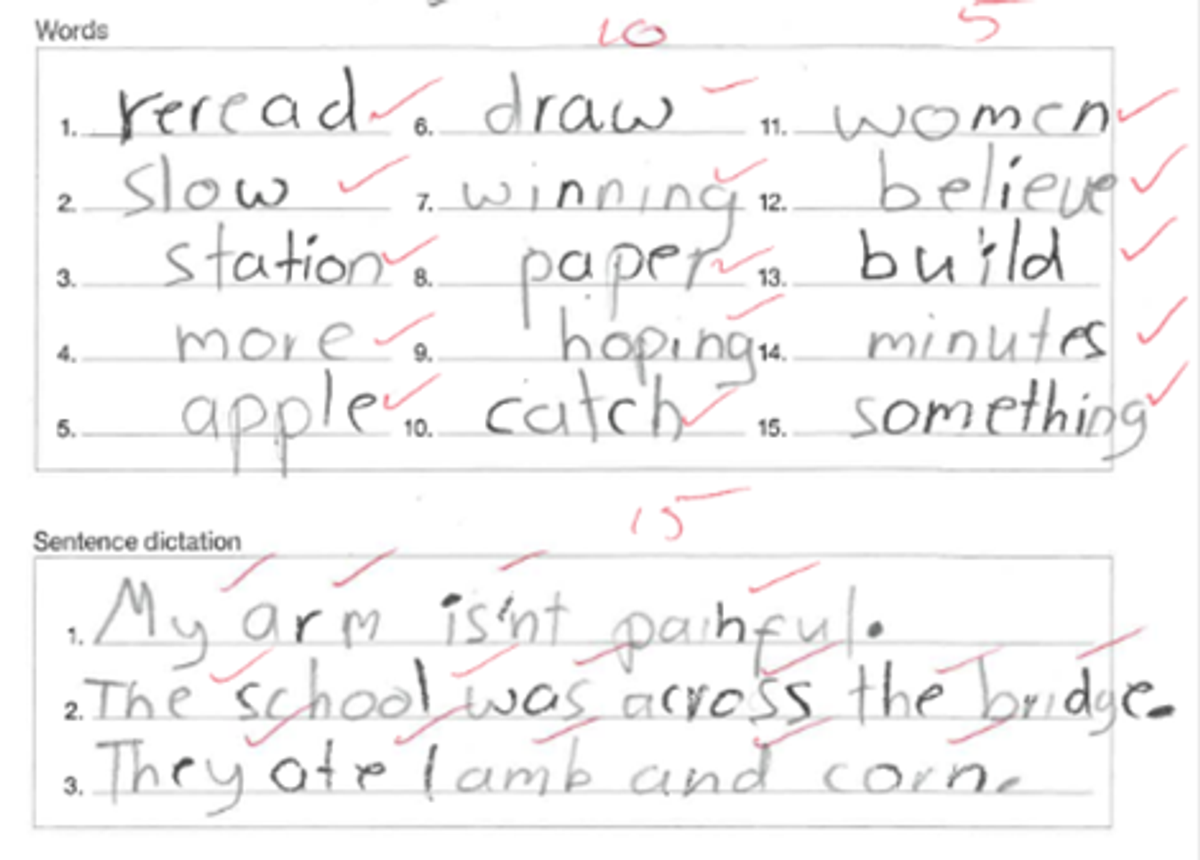 Words
10
5
1. reread 6. draw 11. women
2. slow 7. winning 12. believe
3. station 8. paper 13. build
4. more 9. hoping 14. minutes
5. apple 10. catch 15. something
15
Sentence dictation
1. My arm is'nt painful.
2. The school was across the bridge.
3. They ate lamb and corn.